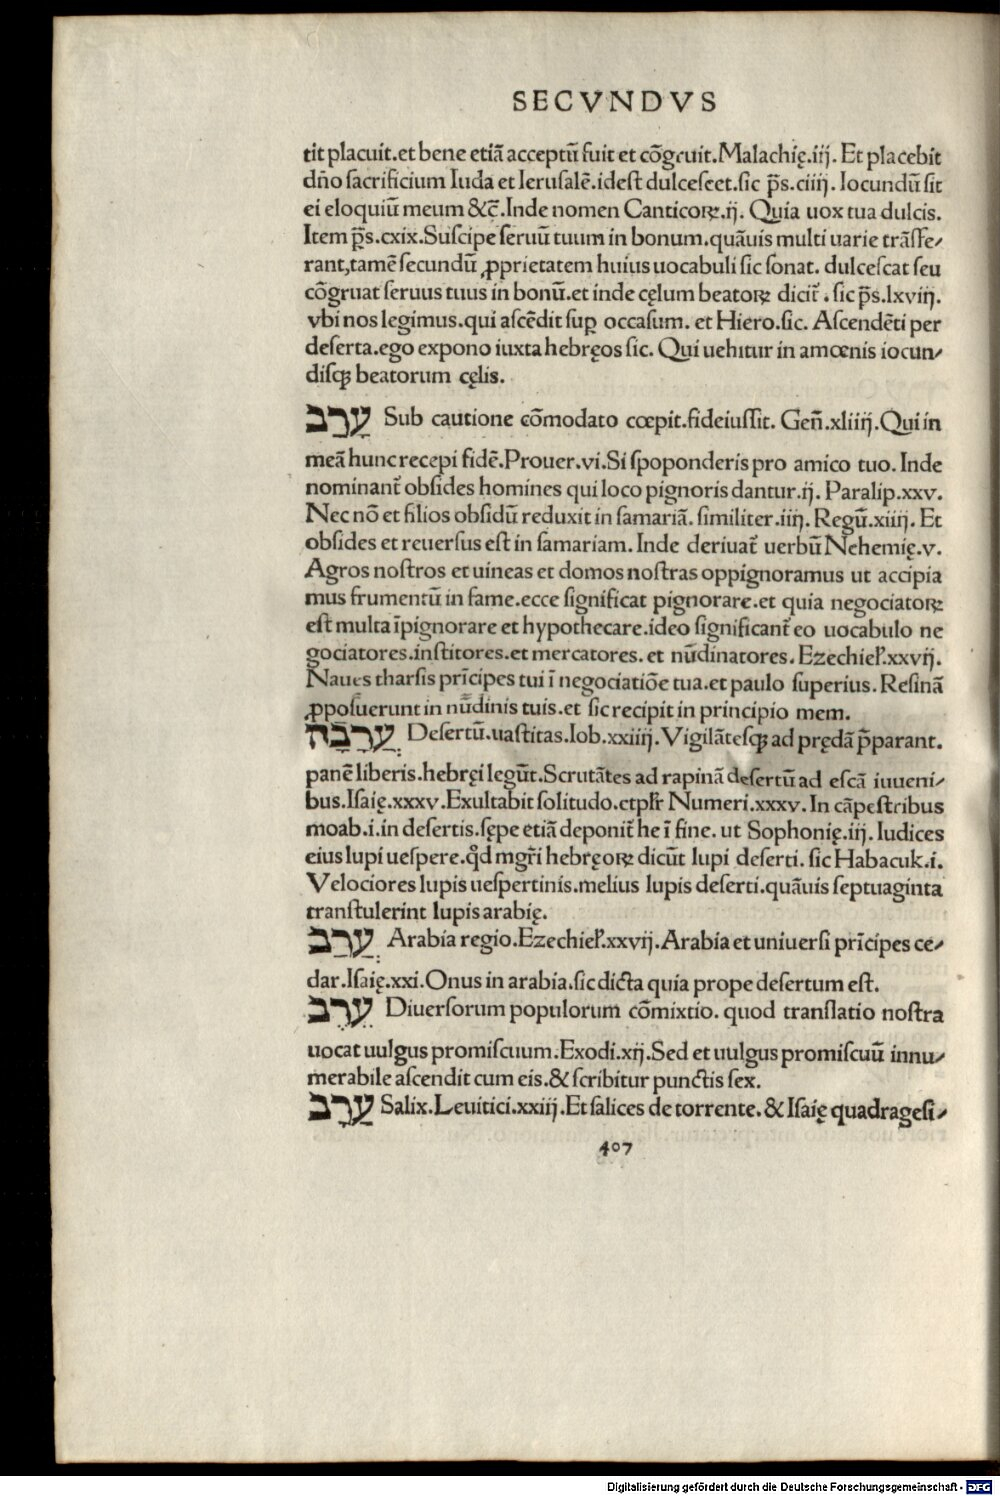 SECVNDVS
tit placuit.et bene etiā acceptū fuit et cōgruit.Malachię.iij. Et placebit
dño sacrificium Iuda et Ierusalē.idest dulcescet.sic p̄s.ciiij. Iocundū sit
ei eloquiū meum &c̄.Inde nomen Canticoꝝ.ij. Quia uox tua dulcis.
Item p̄s.cxix.Suscipe seruū tuum in bonum.quāuis multi uarie trāsfe⸗
rant,tamē secundū ꝓprietatem huius uocabuli sic sonat. dulcescat seu
cōgruat seruus tuus in bonū.et inde cęlum beatoꝝ dicit̄ . sic p̄s.lxvij.
vbi nos legimus.qui ascēdit suꝑ occasum. et Hiero.sic. Ascendēti per
deserta.ego expono iuxta hebręos sic. Qui uehitur in amœnis iocun⸗
disqꝫ beatorum cęlis.
עָרַב Sub cautione cōmodato cœpit.fideiussit. Geñ.xliiij.Qui in
meā hunc recepi fidē.Prouer.vi.Si spoponderis pro amico tuo. Inde
nominant̄ obsides homines qui loco pignoris dantur.ij. Paralip.xxv.
Nec nō et filios obsidū reduxit in samariā. similiter.iiij. Regū.xiiij. Et
obsides et reuersus est in samariam. Inde deriuat̄ uerbū Nehemię.v.
Agros nostros et uineas et domos nostras oppignoramus ut accipia
mus frumentū in fame.ecce significat pignorare.et quia negociatoꝝ
est multa īpignorare et hypothecare.ideo significant̄ eo uocabulo ne
gociatores.institores.et mercatores. et nūdinatores. Ezechieł.xxvij.
Naues tharsis prīcipes tui ī negociatiōe tua.et paulo superius. Resinā
ꝓposuerunt in nūdinis tuis.et sic recipit in principio mem.
עֲרָבָה Desertū.uastitas.Iob.xxiiij.Vigilātesqꝫ ad prędā p̄parant.
panē liberis.hebręi legūt.Scrutātes ad rapinā desertū ad escā iuueni⸗
bus.Isaię.xxxv.Exultabit solitudo.et płr Numeri.xxxv. In cāpestribus
moab.i.in desertis.sępe etiā deponit̄ he ī fine. ut Sophonię.iij. Iudices
eius lupi uespere.qđ mgr̄i hebręoꝝ dicūt lupi deserti. sic Habacuk.i.
Velociores lupis uespertinis.melius lupis deserti.quāuis septuaginta
transtulerint lupis arabię.
עֲרַב Arabia regio.Ezechieł.xxvij.Arabia et uniuersi prīcipes ce⸗
dar.Isaię.xxi.Onus in arabia.sic dicta quia prope desertum est.
עֵרֶב Diuersorum populorum cōmixtio. quod translatio nostra
uocat uulgus promiscuum.Exodi.xij.Sed et uulgus promiscuū innu⸗
merabile ascendit cum eis.& scribitur punctis sex.
עֲרָב Salix.Leuitici.xxiij.Et salices de torrente.& Isaię quadragesi⸗
407
Digitalisierung gefördert durch die Deutsche Forschungsgemeinschaft - DFG